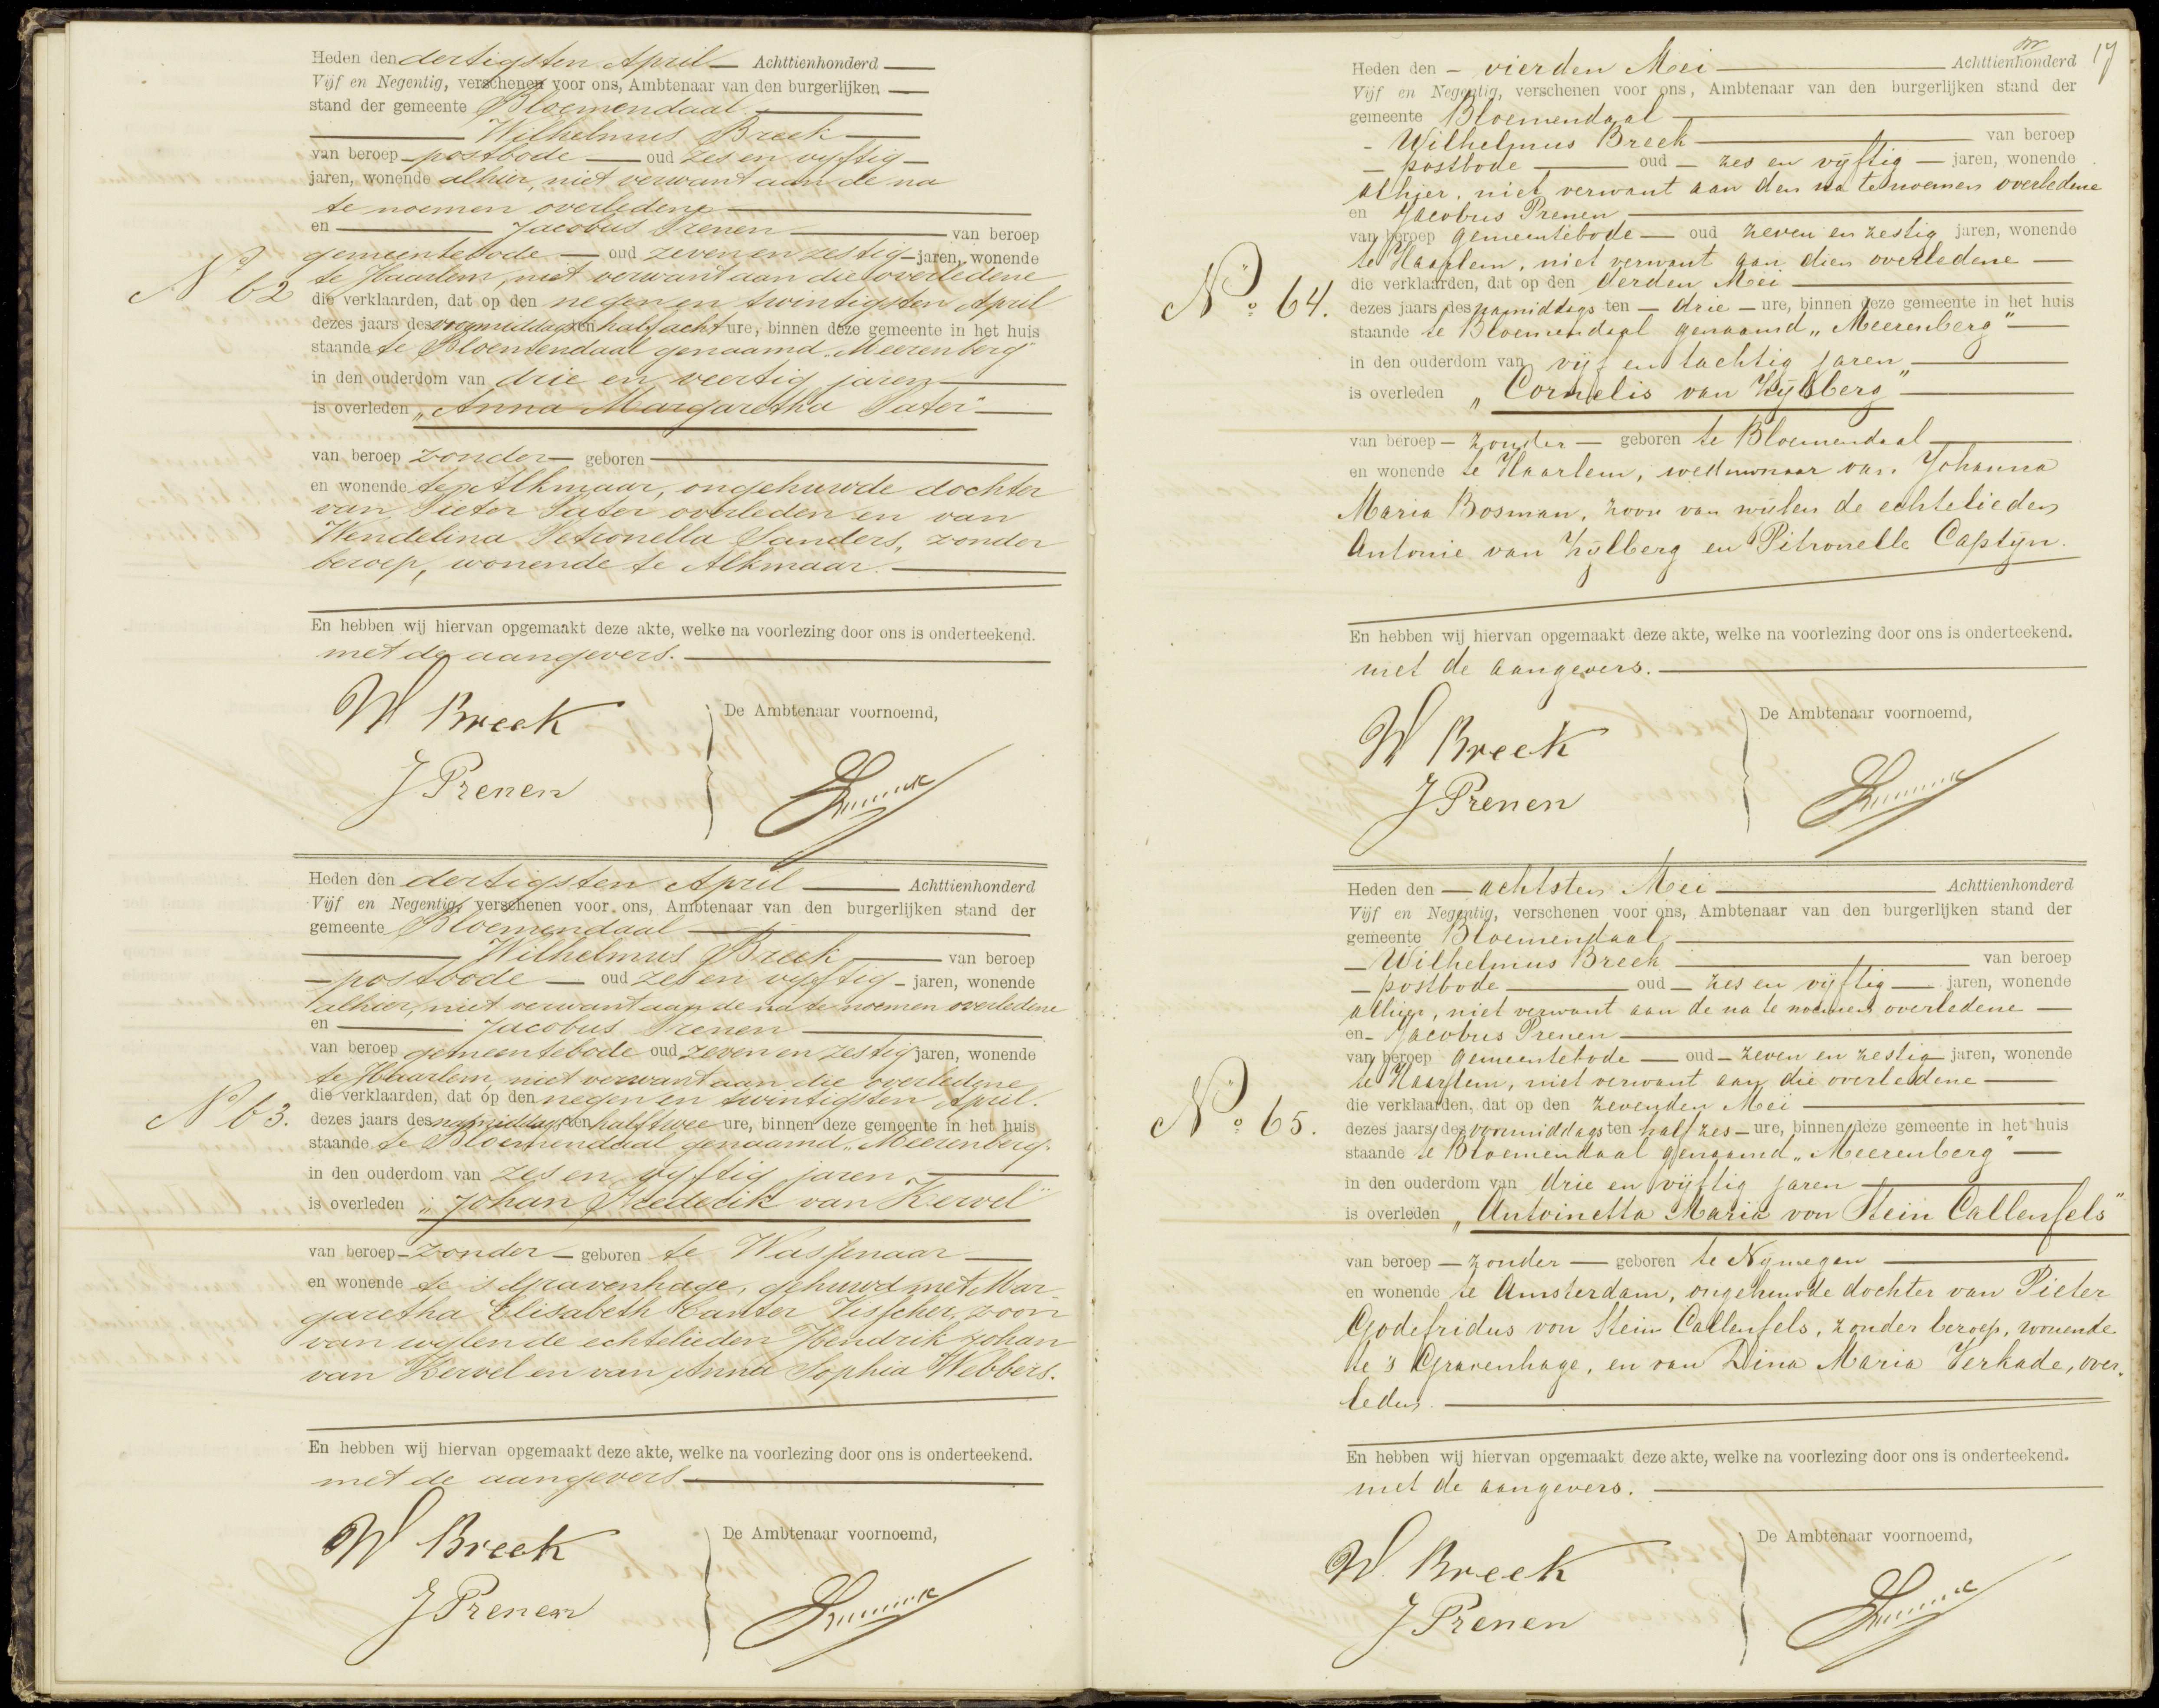 Heden den dertigsten April Achttienhonderd
Vijf en Negentig, verschenen voor ons, Ambtenaar van den burgerlijken
stand der gemeente Bloemendaal
Wilhelmus Breek
van beroep postbode oud zes en vyftig
jaren, wonende alhier, niet verwant aan de na
te noemen overledene
en Jacobus Prenen van beroep
gemeentebode oud zeven en zestig jaren, wonende
te Haarlem, niet verwant aan die overledene
No 62
die verklaarden, dat op den negen en twintigsten April
dezes jaars des voormiddags ten half acht ure, binnen deze gemeente in het huis
staande te Bloemendaal genaamd "Meerenberg"
in den ouderdom van drie en veertig jaren
is overleden "Anna Margaretha Pater"
van beroep zonder geboren
en wonende te Alkmaar, ongehuwde dochter
van Pieter Pater overleden en van
Wendelina Petronella Sanders, zonder
beroep, wonende te Alkmaar.
En hebben wij hiervan opgemaakt deze akte, welke na voorlezing door ons is onderteekend.
met de aangevers.
W Breek
De Ambtenaar voornoemd,
J Prenen
Heden den dertigsten April Achttienhonderd
Vijf en Negentig, verschenen voor ons, Ambtenaar van den burgerlijken stand der
gemeente Bloemendaal
Wilhelmus Breek van beroep
postbode oud zes en vyftig jaren, wonende
alhier, niet verwant aan de na te noemen overledene
en Jacobus Prenen
van beroep gemeentebode oud zeven en zestig jaren, wonende
te Haarlem, niet verwant aan die overledene
die verklaarden, dat op den negen en twintigsten April.
No 63.
dezes jaars des namiddags ten half twee ure, binnen deze gemeente in het huis
staande te Bloemendaal genaamd "Meerenberg"
in den ouderdom van zes en vyftig jaren
is overleden "Johan Frederik van Kervel"
van beroep zonder geboren te Wassenaar
en wonende te 's Gravenhage, gehuwd met Mar-
garetha Elisabeth Kanter Visscher, zoon
van wylen de echtelieden Hendrik Johan
van Kervel en van Anna Sophia Webbers.
En hebben wij hiervan opgemaakt deze akte, welke na voorlezing door ons is onderteekend.
met de aangevers
W Breek
De Ambtenaar voornoemd,
J Prenen
17
Heden den vierden Mei Achttienhonderd
Vijf en Negentig, verschenen voor ons, Ambtenaar van den burgerlijken stand der
gemeente Bloemendaal
Wilhelmus Breek van beroep
postbode oud zes en vijftig jaren, wonende
alhier, niet verwant aan den na te noemen overledene
en Jacobus Prenen
van beroep gemeentebode oud zeven en zestig jaren, wonende
te Haarlem, niet verwant aan dien overledene
die verklaarden, dat op den derden Mei
No 64.
dezes jaars des namiddags ten drie ure, binnen deze gemeente in het huis
staande te Bloemendaal genaamd "Meerenberg"
in den ouderdom van vijf en tachtig jaren
is overleden "Cornelis van Zijlberg"
van beroep zonder geboren te Bloemendaal
en wonende te Haarlem, weduwnaar van Johanna
Maria Bosman, zoon van wijlen de echtelieden
Antonie van Zijlberg en Pitronelle Captijn.
En hebben wij hiervan opgemaakt deze akte, welke na voorlezing door ons is onderteekend.
met de aangevers.
W Breek
De Ambtenaar voornoemd,
J Prenen
Heden den achtsten Mei Achttienhonderd
Vijf en Negentig, verschenen voor ons, Ambtenaar van den burgerlijken stand der
gemeente Bloemendaal
Wilhelmus Breek van beroep
postbode oud zes en vijftig jaren, wonende
alhier, niet verwant aan de na te noemen overledene
en Jacobus Prenen
van beroep gemeentebode oud zeven en zestig jaren, wonende
te Haarlem, niet verwant aan die overledene
die verklaarden, dat op den zevenden Mei
No 65.
dezes jaars des voormiddags ten half zes ure, binnen deze gemeente in het huis
staande te Bloemendaal genaamd "Meerenberg"
in den ouderdom van drie en vijftig jaren
is overleden "Antoinetta Maria von Stein Callenfels"
van beroep zonder geboren te Nijmegen
en wonende te Amsterdam, ongehuwde dochter van Pieter
Godefridus von Stein Callenfels, zonder beroep, wonende
te 's Gravenhage, en van Dina Maria Verkade, over-
leden.
En hebben wij hiervan opgemaakt deze akte, welke na voorlezing door ons is onderteekend.
met de aangevers.
W. Breek
De Ambtenaar voornoemd,
J Prenen